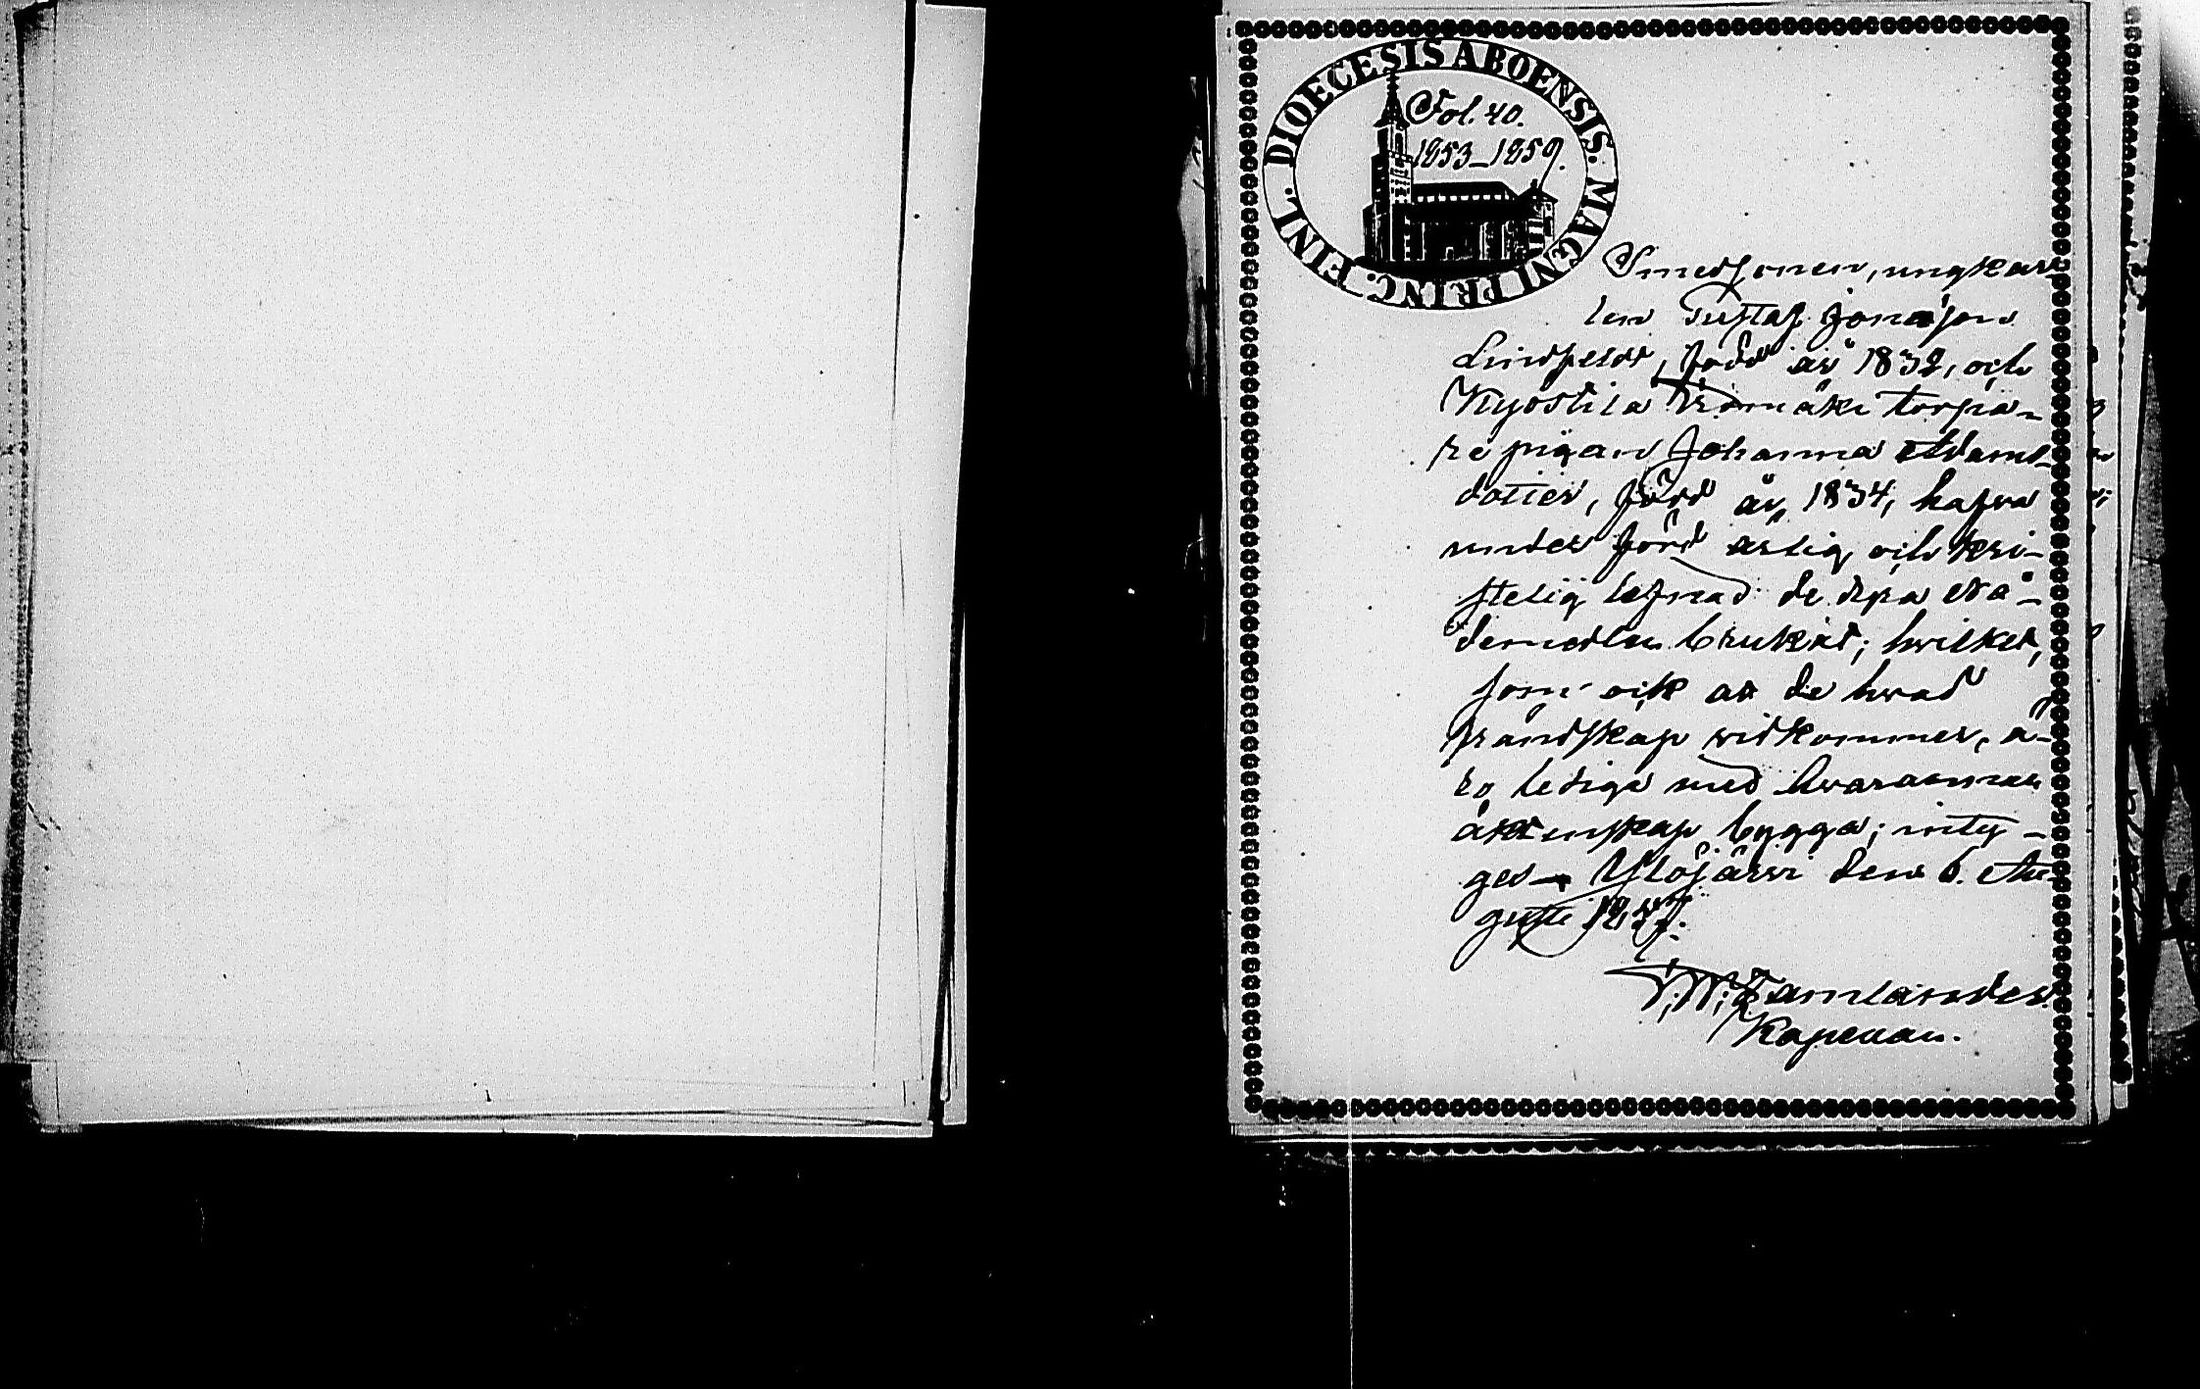 DIOECESIS ABOENSIS. MAGNI PRINC. FINL.
Fol. 40.
1853–1859.
Smedsonen, ungkar-
len Gustaf Jonasson
Lindfeldt, född år 1832, och
Kyöstilä torpa-
re pigan Johanna Adams-
dotter, född år 1834, hafva
under förd ärlig och kri-
stelig lefnad de dyra Nå-
demedlen brukat; hvilket,
som ock at de hvad
frändskap vidkommer, ä-
ro lediga med hvarannan
äktenskap bygga; inty-
ges Ylöjärvi den 6. Au-
gusti 1857.
Kapellan.